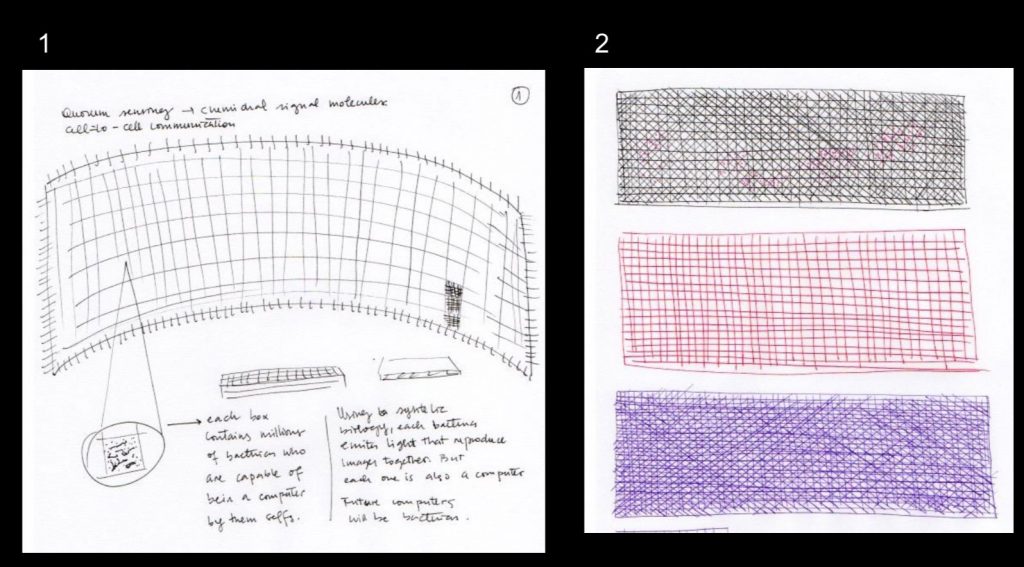 1
2
Quorum sensing → chimichal signal molecules
cell-to-cell communication
1
→ each box
contains millions
of bacterias who
are capable of
bein a computer
by them selfs.
Using synthetic
biology, each bacterias
emits light that reproduce
images together. But
each one is also a computer
Future computers
will be bacterias.